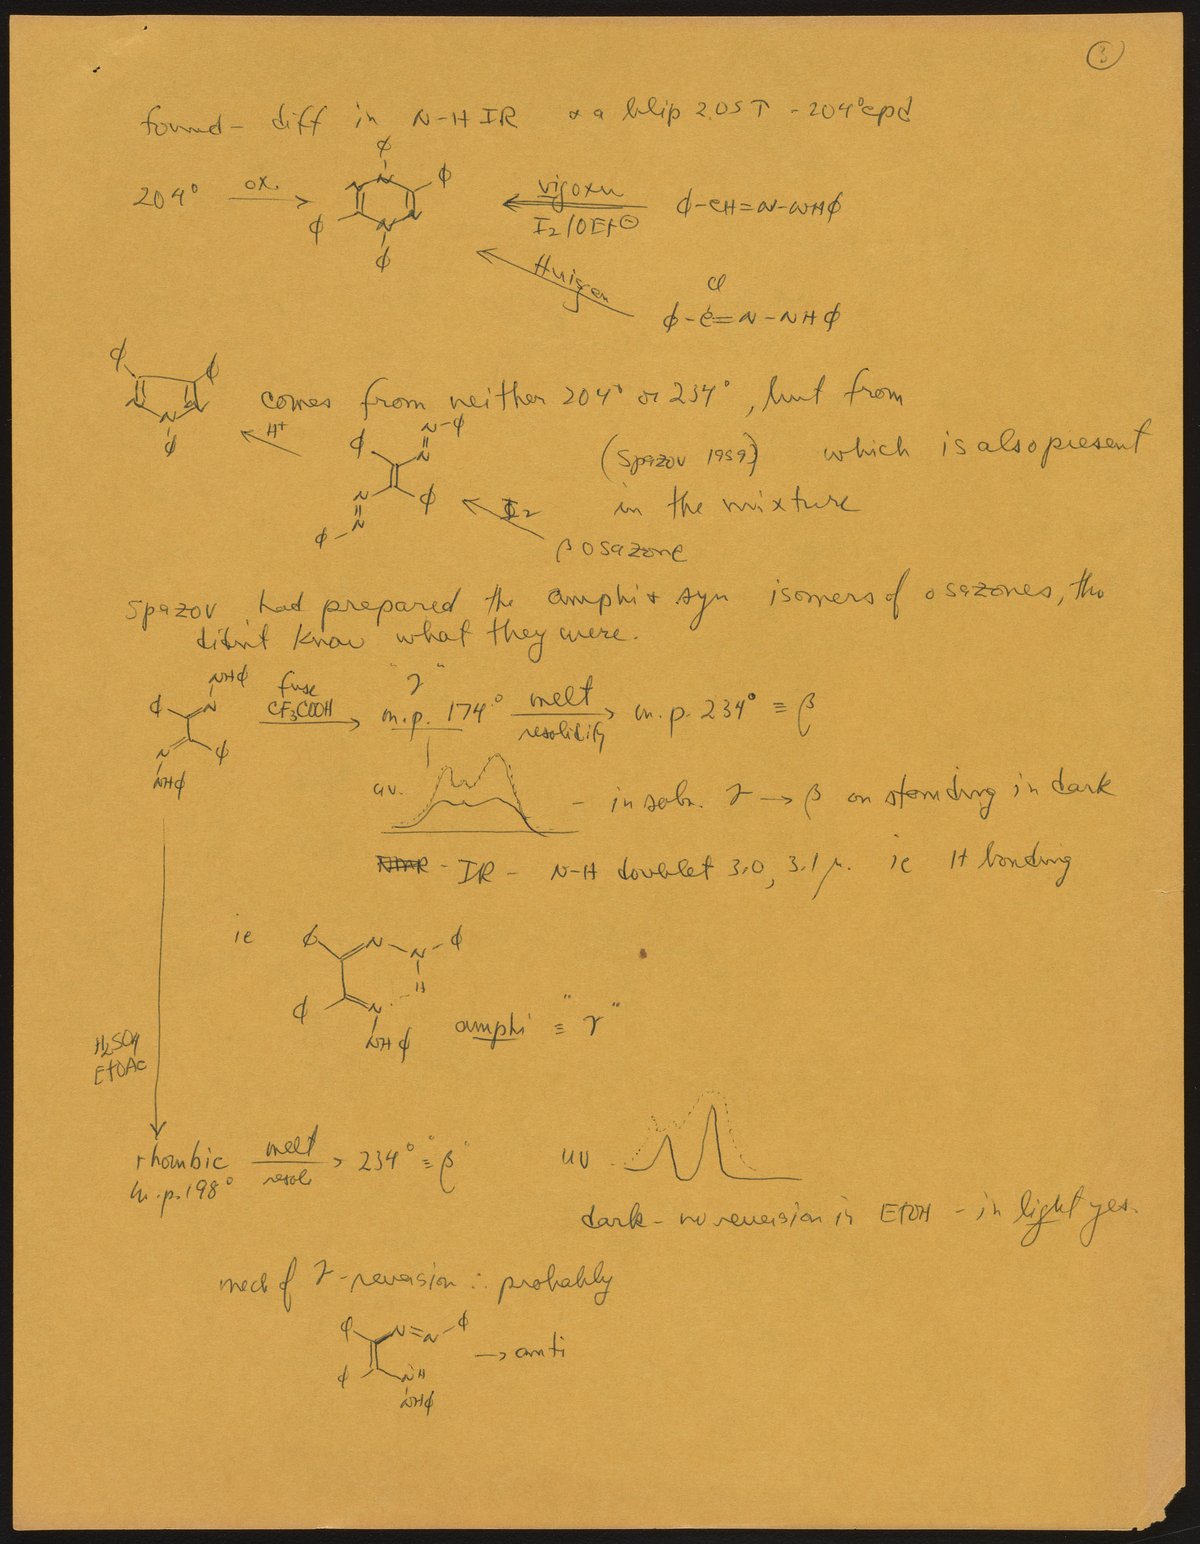 3
found - diff in N-H IR & a blip 2.05 τ - 204° cpd
204° ox. →
ϕ
N N ϕ
ϕ N N
ϕ
I2/OEt⊖
ϕ-CH=N-NHϕ
Huisgen
Cl
ϕ-C=N-NHϕ
ϕ ϕ
N N
N
ϕ
comes from neither 204° or 234°, but from
H+
ϕ N-ϕ
N
N ϕ
N
ϕ-
(Spazov 1959) which is also present
in the mixture
I2
β osazone
Spazov had prepared the amphi & syn isomers of osazones, tho
didn't know what they were.
NHϕ
ϕ N
N ϕ
NHϕ
fuse
CF3COOH →
"γ"
m.p. 174° melt → m.p. 234° ≡ β
resolidify
uv.
- in soln. γ → β on standing in dark
NMR - IR - N-H doublet 3.0, 3.1 μ. ie H bonding
ie
ϕ N-N-ϕ
H
ϕ N
NHϕ
amphi ≡ "γ"
H2SO4
EtOAc
rhombic melt → 234° ≡ "β"
m.p. 198° resol.
UV
dark - no reversion in EtOH - in light yes.
mech of γ-reversion ∴ probably
ϕ N=N-ϕ
ϕ NH
NHϕ
→ anti